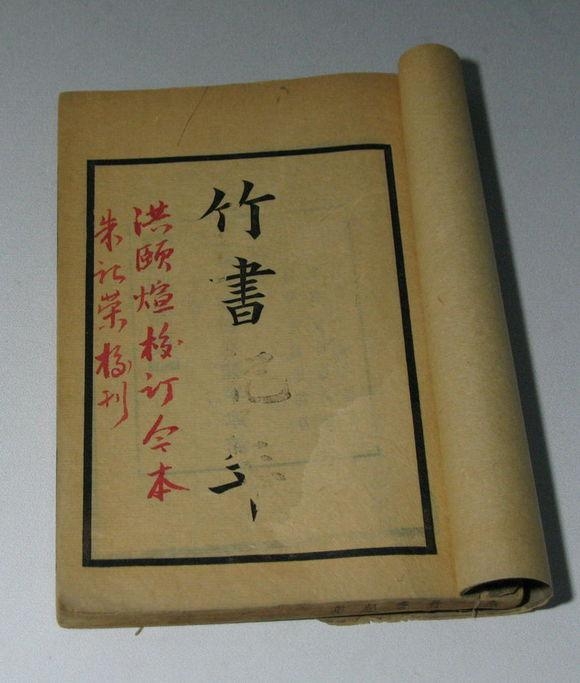 竹書紀年
洪頤煊校订今本
朱记榮校刊